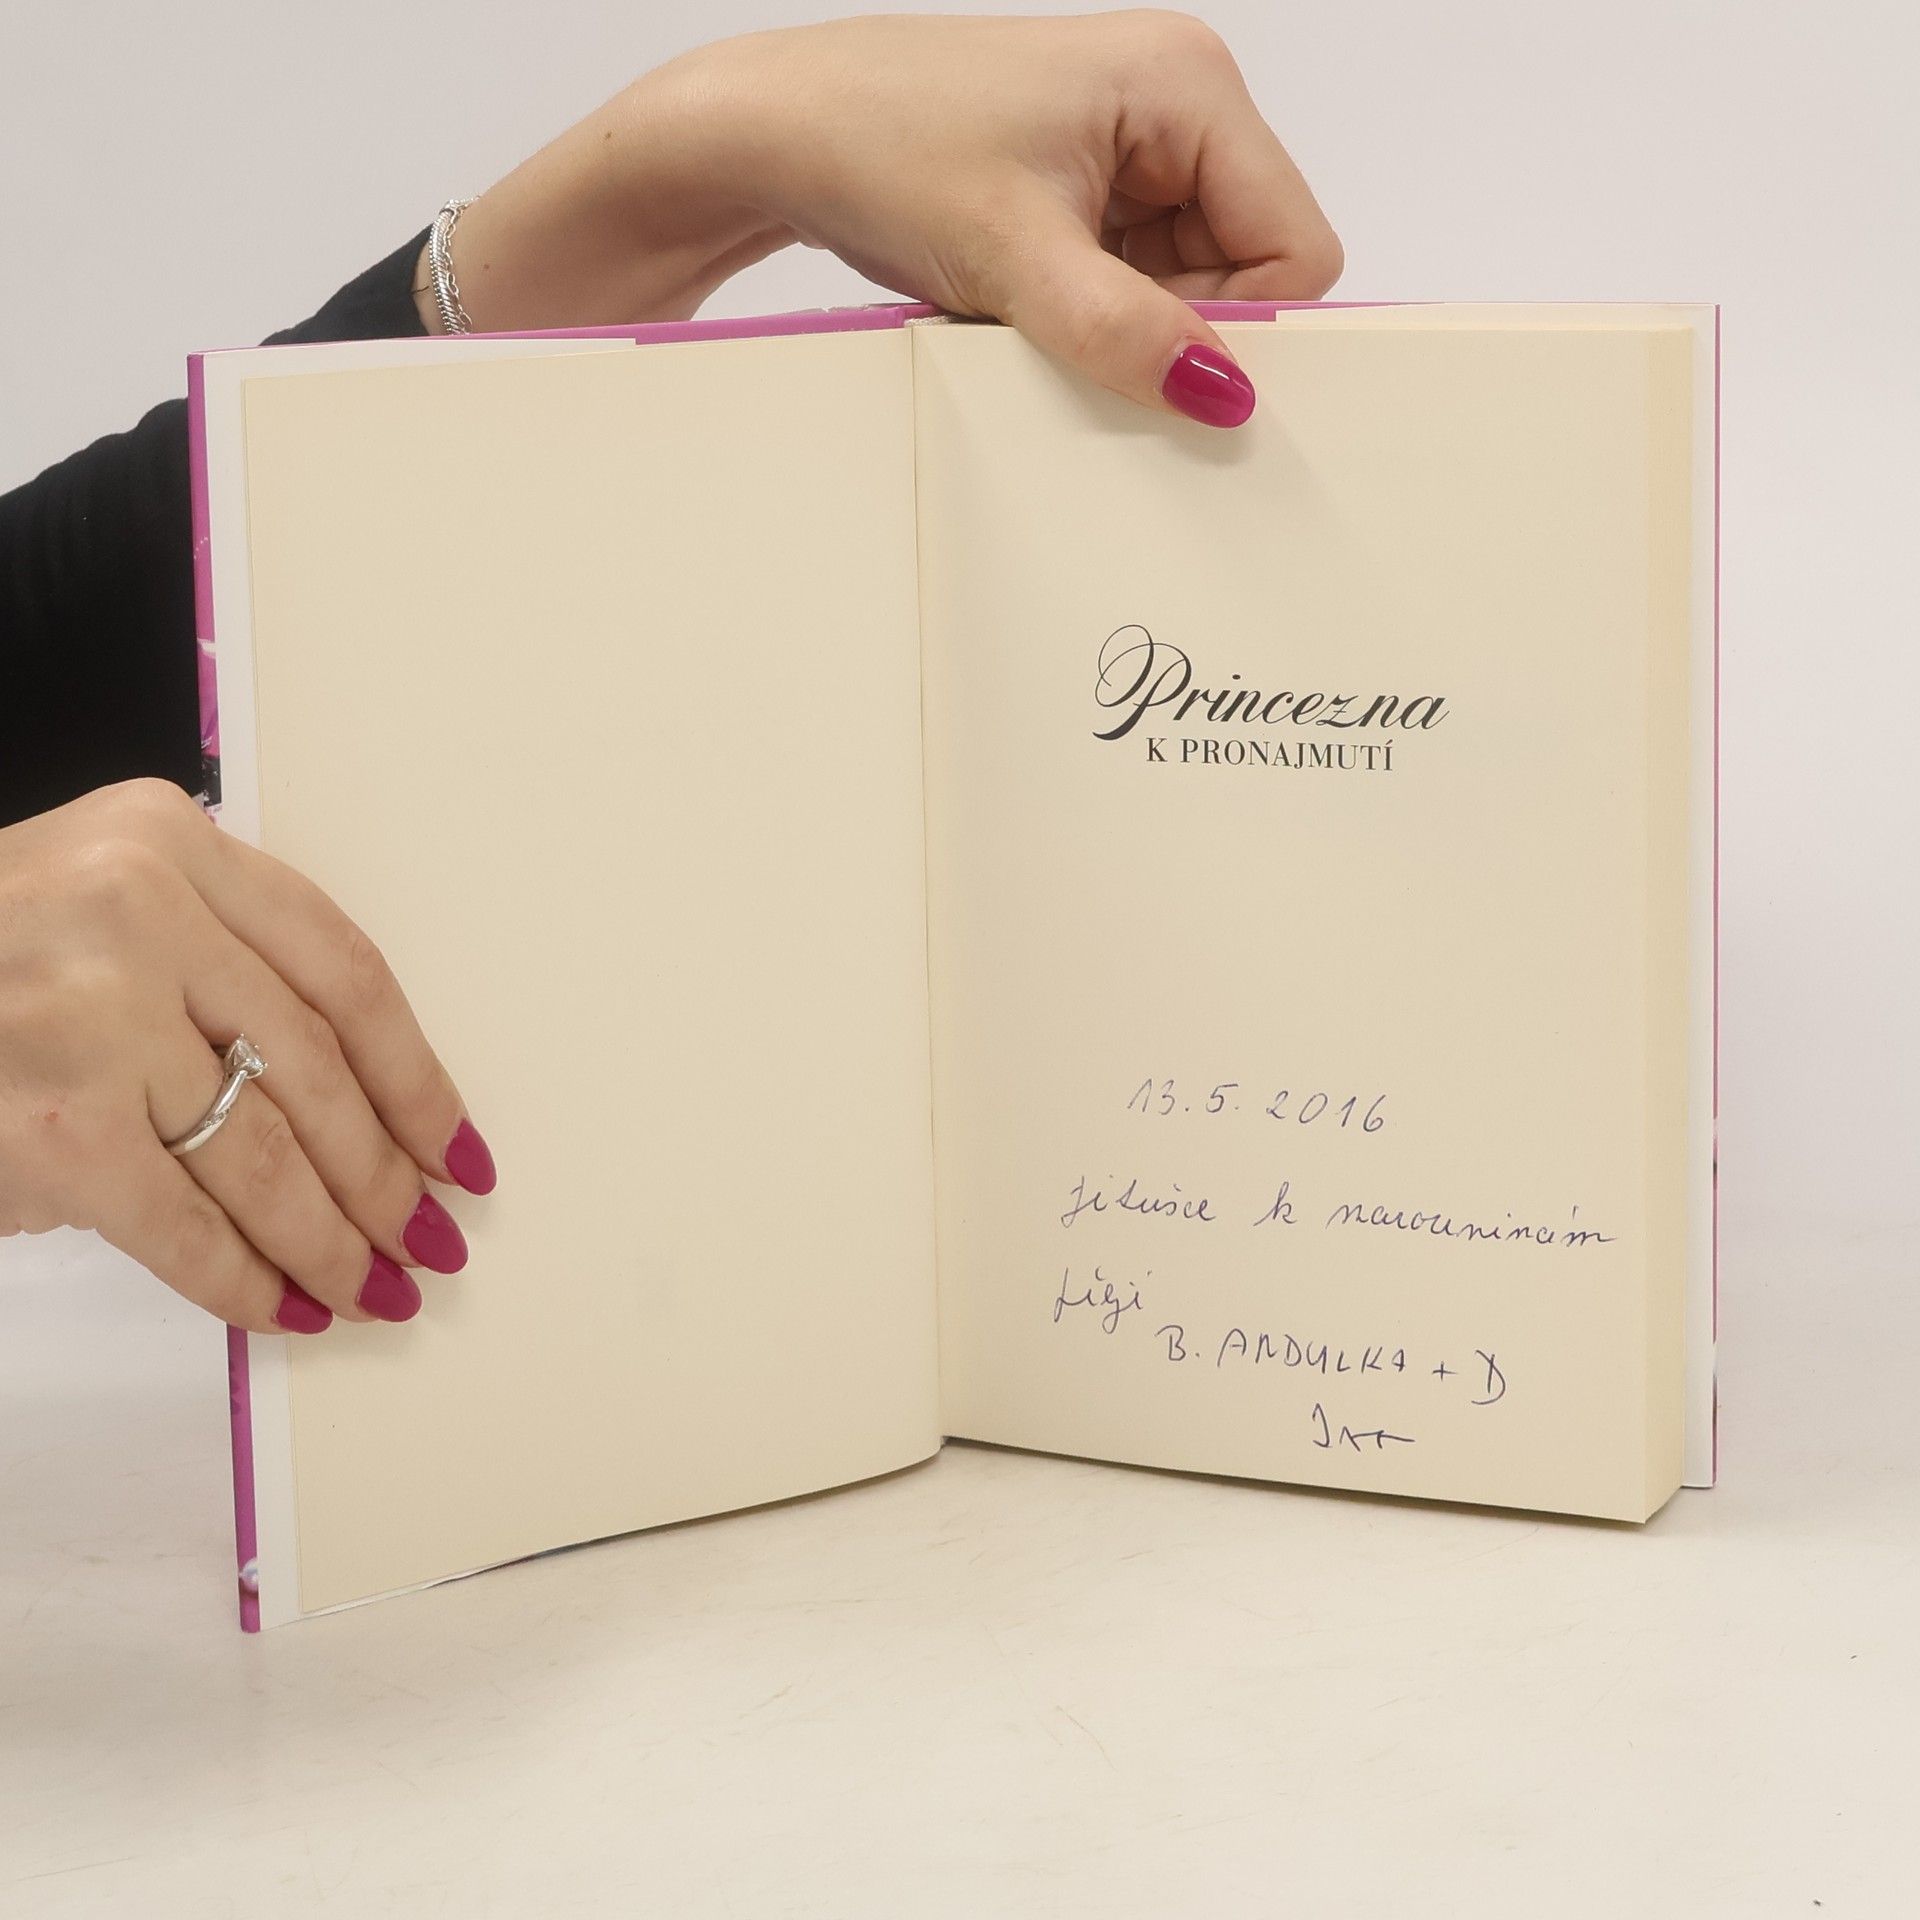 Princezna
K PRONAJMUTÍ
13. 5. 2016
Jitušce k narozeninám
přejí
B. ANDULKA + D